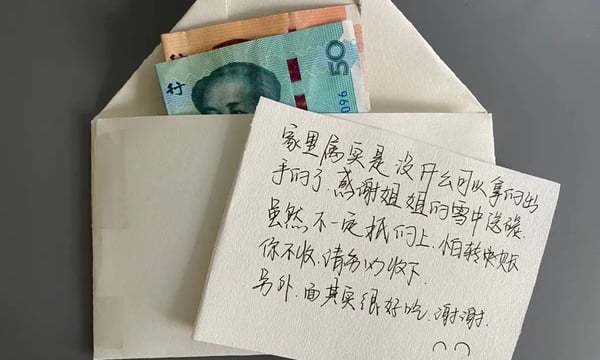 行
50
096
家里属实是没什么可以拿的出
手的了.感谢姐姐的雪中送碳.
虽然不一定抵的上.怕转账
你不收.请务必收下.
另外.面其实很好吃.谢谢.